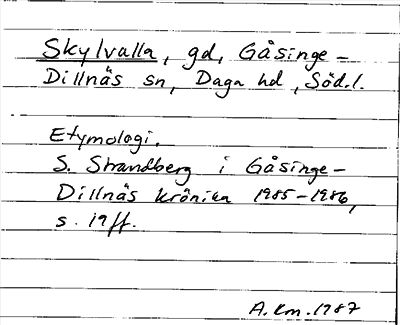 Skylvalla, gd, Gåsinge-
Dillnäs sn, Daga hd, Söd.l.
Etymologi.
S. Strandberg i Gåsinge-
Dillnäs krönika 1985-1986,
s. 19 ff.
A.Km.1987